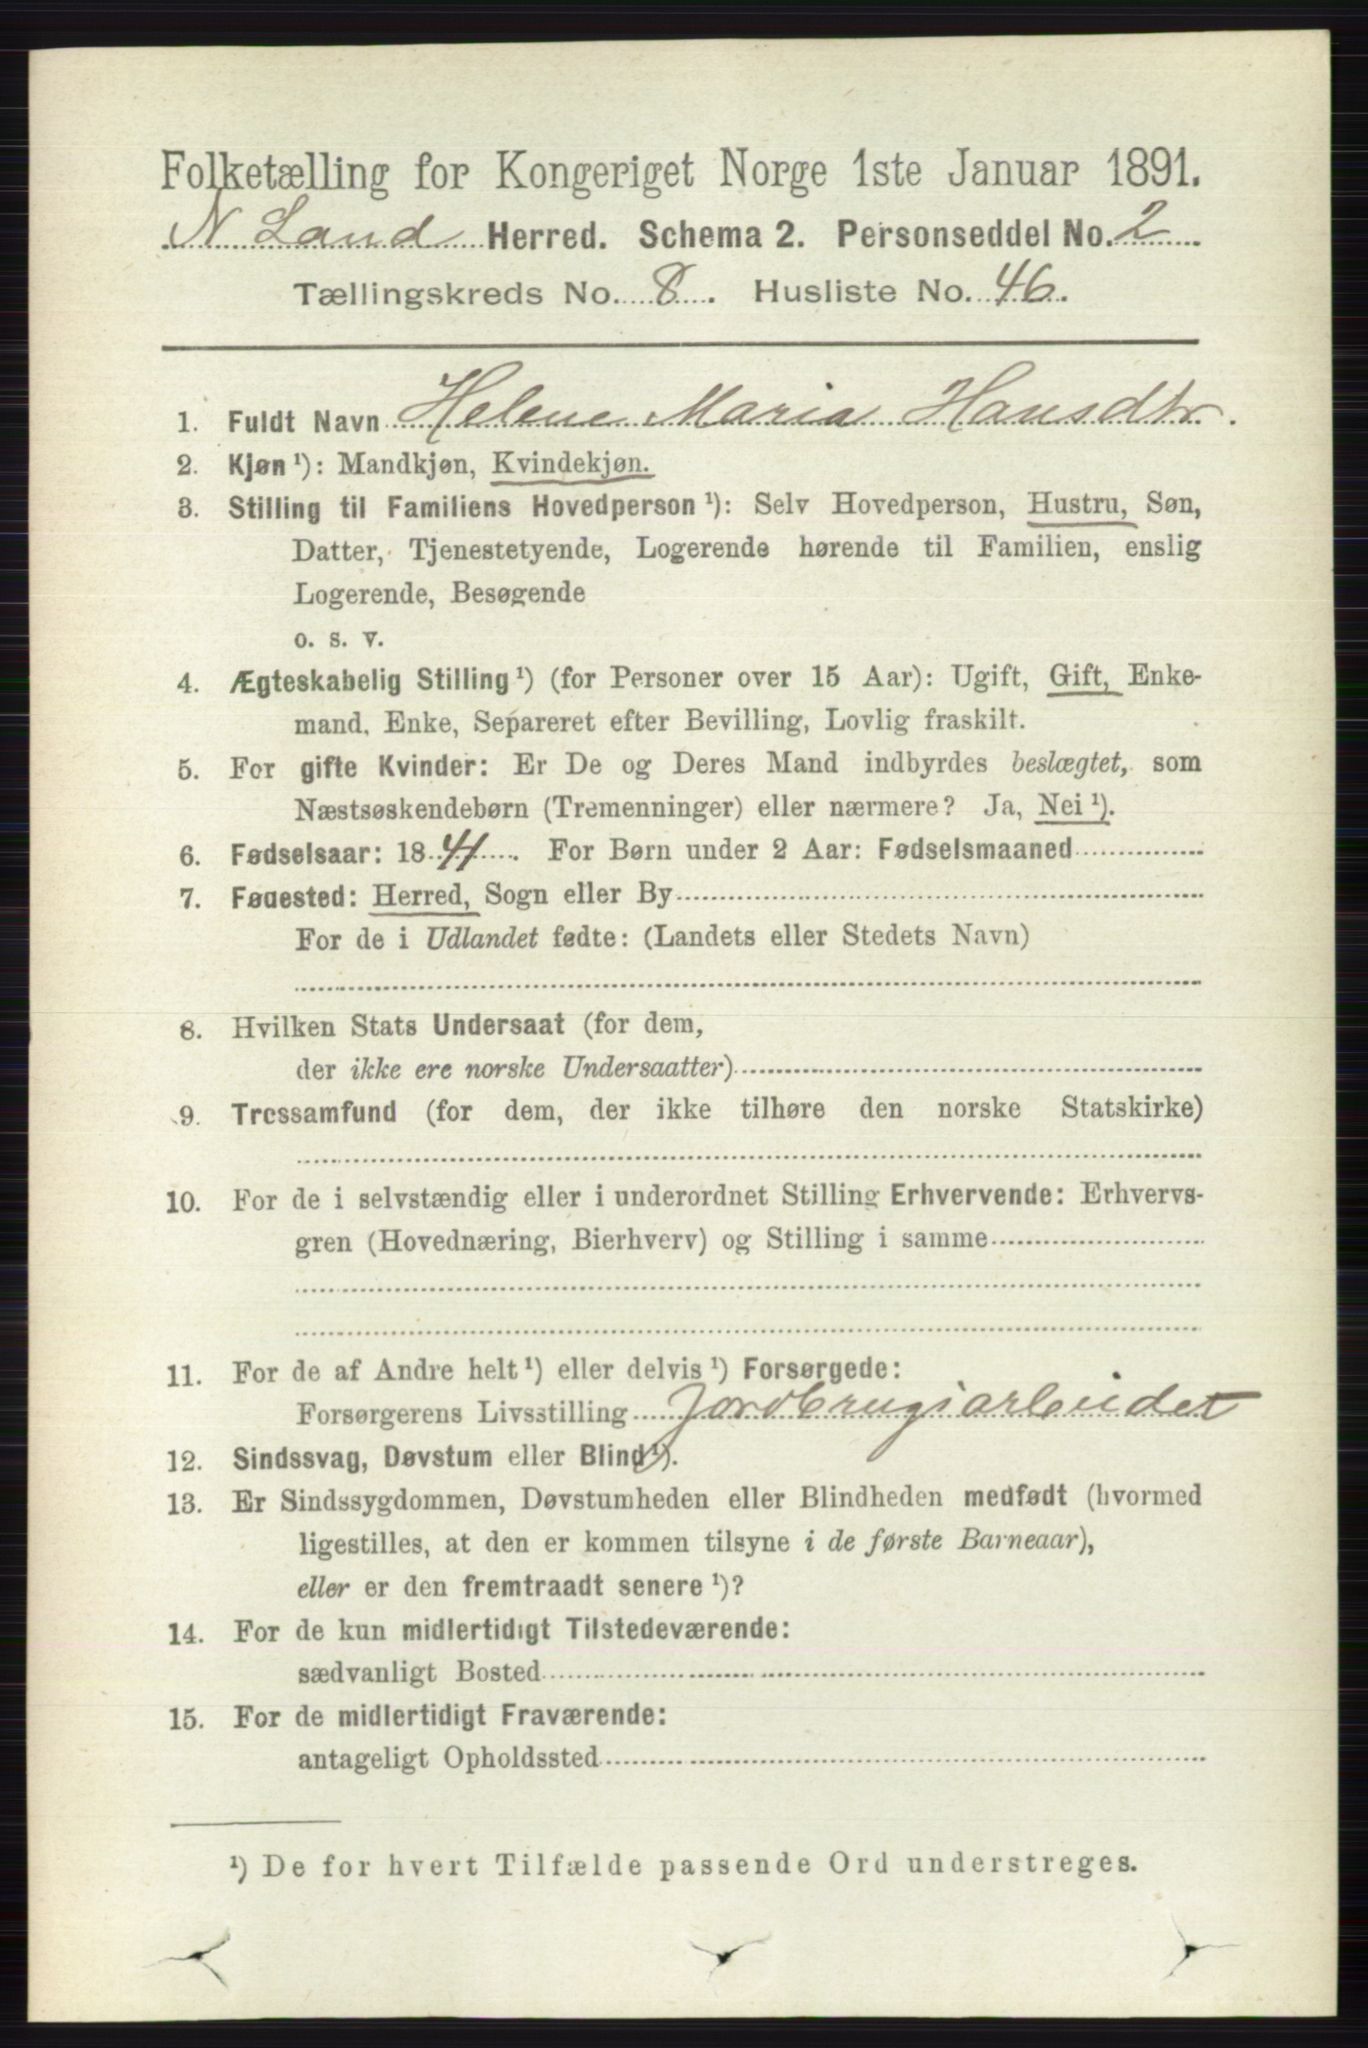 Folketælling for Kongeriget Norge 1ste Januar 1891.
N Land Herred. Schema 2. Personseddel No. 2
Tællingskreds No. 8. Husliste No. 46.
1. Fuldt Navn Helene Maria Hansdtr.
2. Kjøn¹): Mandkjøn, Kvindekjøn.
3. Stilling til Familiens Hovedperson¹): Selv Hovedperson, Hustru, Søn,
Datter, Tjenestetyende, Logerende hørende til Familien, enslig
Logerende, Besøgende
o. s. v.
4. Ægteskabelig Stilling¹) (for Personer over 15 Aar): Ugift, Gift, Enke-
mand, Enke, Separeret efter Bevilling, Lovlig fraskilt.
5. For gifte Kvinder: Er De og Deres Mand indbyrdes beslægtet, som
Næstsøskendebørn (Tremenninger) eller nærmere? Ja, Nei¹).
6. Fødselsaar: 1841. For Børn under 2 Aar: Fødselsmaaned
7. Fødested: Herred, Sogn eller By
For de i Udlandet fødte: (Landets eller Stedets Navn)
8. Hvilken Stats Undersaat (for dem,
der ikke ere norske Undersaatter)
9. Trossamfund (for dem, der ikke tilhøre den norske Statskirke)
10. For de i selvstændig eller i underordnet Stilling Erhvervende: Erhvervs-
gren (Hovednæring, Bierhverv) og Stilling i samme
11. For de af Andre helt¹) eller delvis¹) Forsørgede:
Forsørgerens Livsstilling Jordbrugsarbeidet
12. Sindssvag, Døvstum eller Blind¹).
13. Er Sindssygdommen, Døvstumheden eller Blindheden medfødt (hvormed
ligestilles, at den er kommen tilsyne i de første Barneaar),
eller er den fremtraadt senere¹)?
14. For de kun midlertidigt Tilstedeværende:
sædvanligt Bosted
15. For de midlertidigt Fraværende:
antageligt Opholdssted
¹) De for hvert Tilfælde passende Ord understreges.